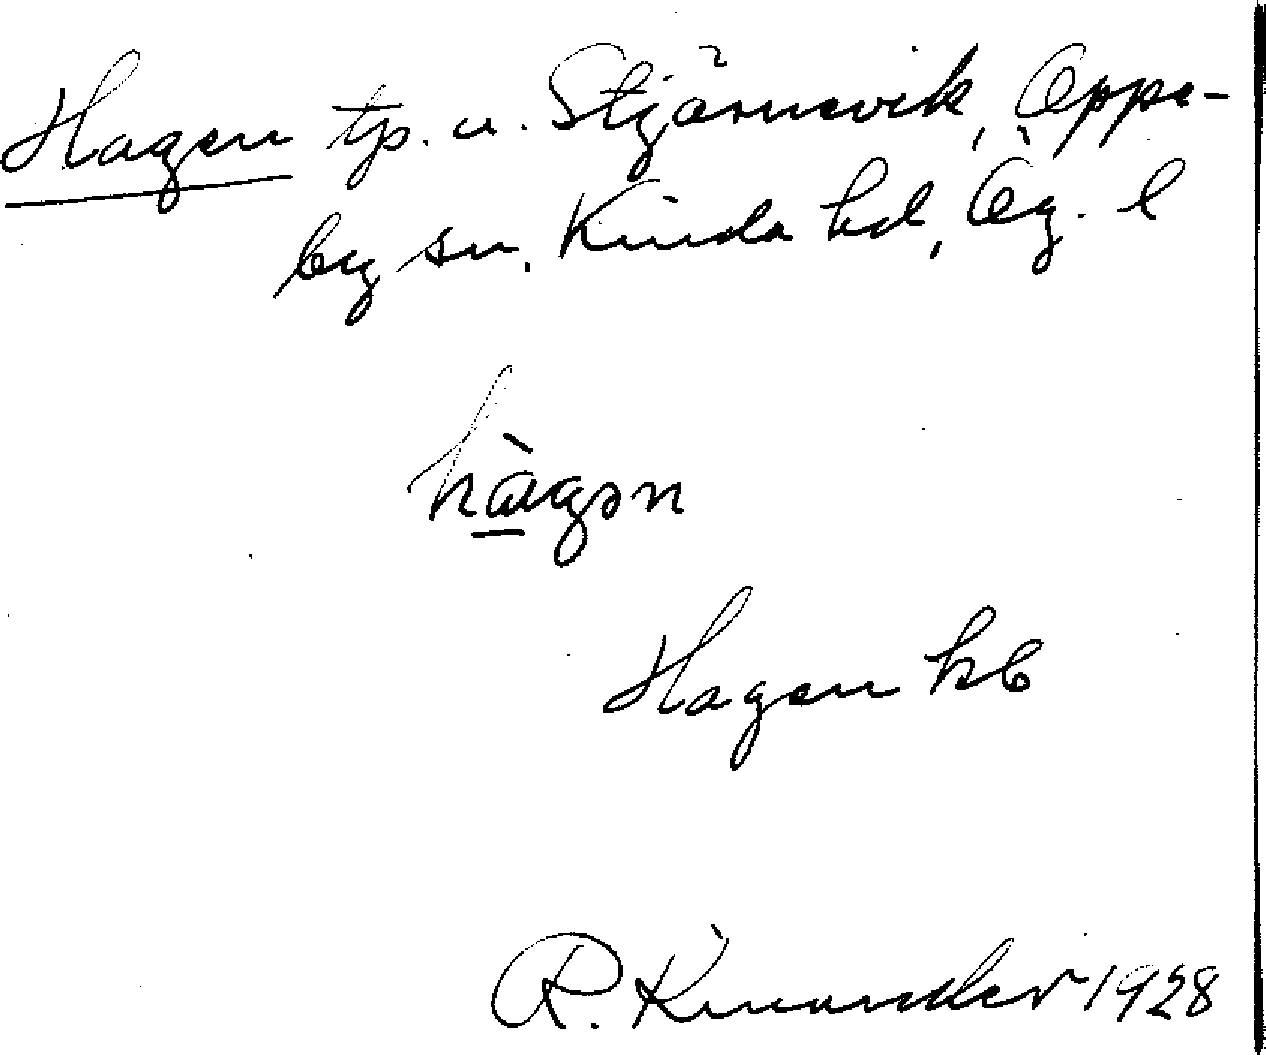 Hagen tp. u. Stjärnevik, Oppe-
by sn. Kinda hd, Ög. l
hàgən
Hagen kb
R. Kinander 1928